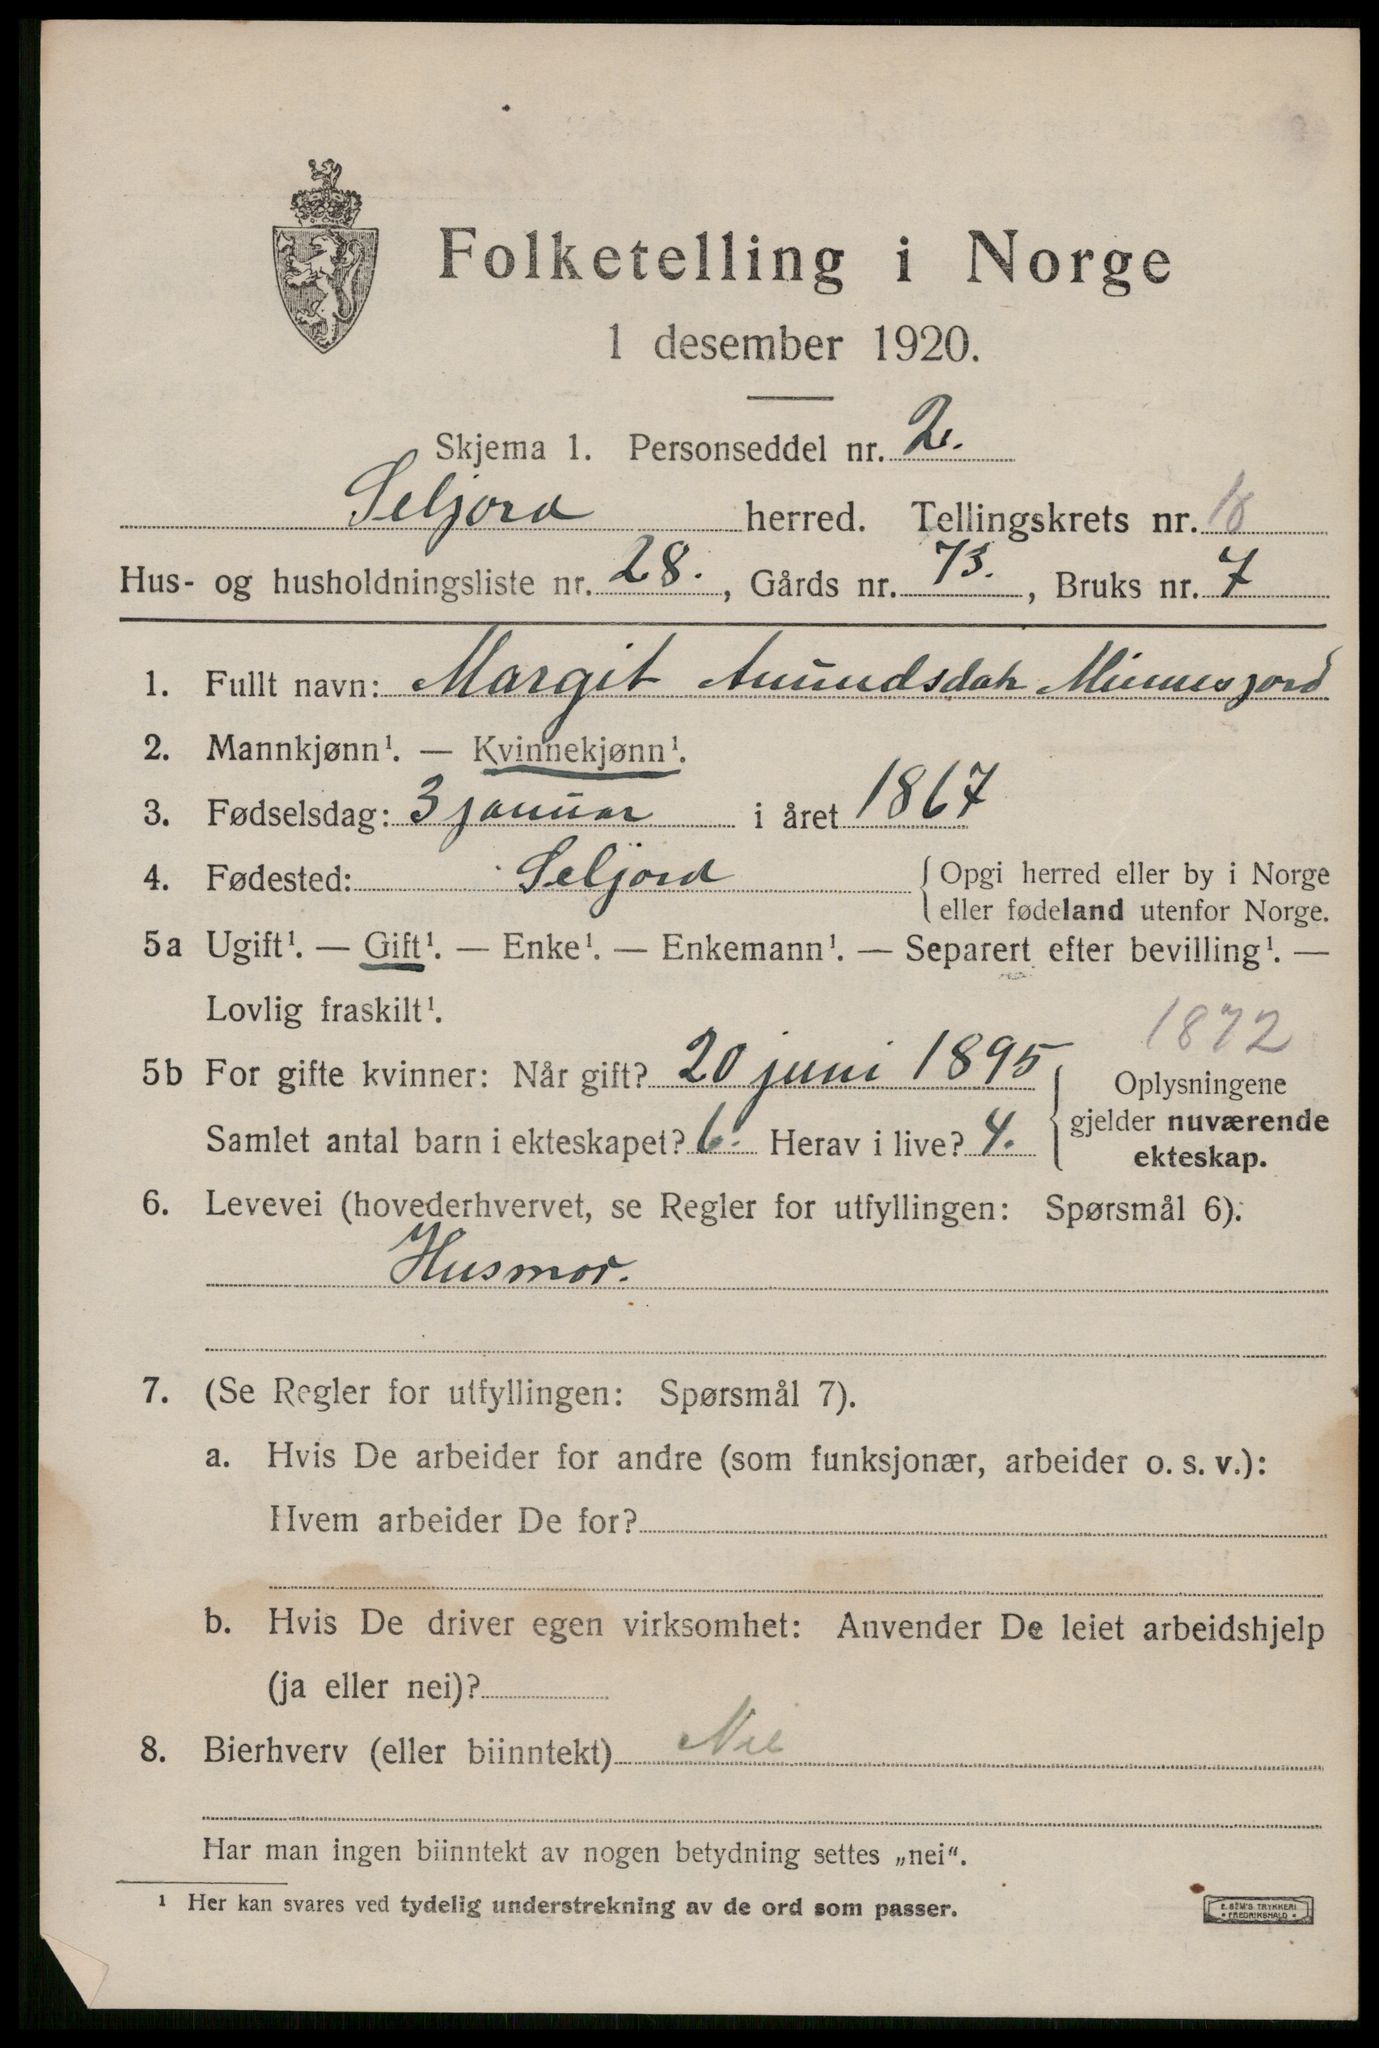 Folketelling i Norge
1 desember 1920.
Skjema 1. Personseddel nr. 2.
Seljord herred. Tellingskrets nr. 18
Hus- og husholdningsliste nr. 28., Gårds nr. 73., Bruks nr. 7
1. Fullt navn: Margit Aanundsdatr Minnesjord
2. Mannkjønn¹. — Kvinnekjønn¹.
3. Fødselsdag: 3 januar i året 1867
4. Fødested: Seljord { Opgi herred eller by i Norge
eller fødeland utenfor Norge.
5a Ugift¹. — Gift¹. — Enke¹. — Enkemann¹. — Separert efter bevilling¹. —
Lovlig fraskilt¹.
1872
5b For gifte kvinner: Når gift? 20 juni 1895
Samlet antal barn i ekteskapet? 6. Herav i live? 4.
Oplysningene
gjelder nuværende
ekteskap.
6. Levevei (hovederhvervet, se Regler for utfyllingen: Spørsmål 6).
Husmor.
7. (Se Regler for utfyllingen: Spørsmål 7).
a. Hvis De arbeider for andre (som funksjonær, arbeider o. s. v.):
Hvem arbeider De for?
b. Hvis De driver egen virksomhet: Anvender De leiet arbeidshjelp
(ja eller nei)?
8. Bierhverv (eller biinntekt) Nei
Har man ingen biinntekt av nogen betydning settes „nei“.
¹ Her kan svares ved tydelig understrekning av de ord som passer.
E. SEM'S TRYKKERI
FREDRIKSHALD